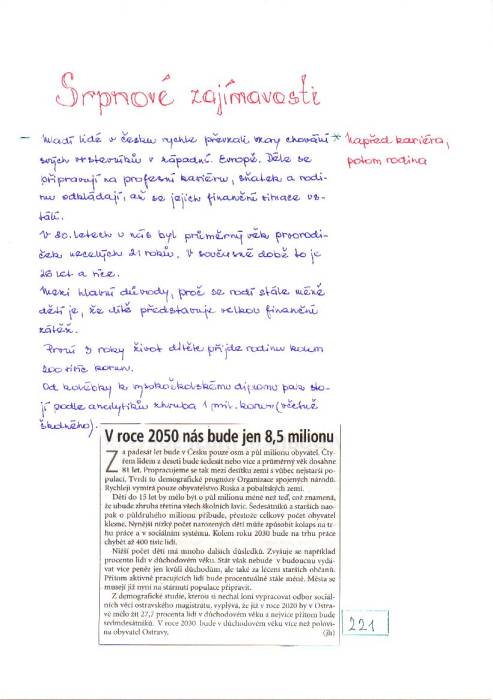 Srpnové zajímavosti
– Mladí lidé v Česku rychle převzali vzory chování * Napřed kariéra,
svých vrstevníků v západní Evropě. Déle se potom rodina
připravují na profesní kariéru, sňatek a rodi-
nu odkládají, až se jejich finanční situace us-
tálí.
V 80. letech u nás byl průměrný věk prvorodi-
ček necelých 21 roků. V současné době to je
26 let a více.
Mezi hlavní důvody, proč se rodí stále méně
dětí je, že dítě představuje velkou finanční
zátěž.
První 3 roky život dítěte přijde rodinu kolem
200 tisíc korun.
Od kolébky k vysokoškolskému diplomu pak sto-
jí podle analytiků zhruba 1 mil. korun (včetně
školného).
V roce 2050 nás bude jen 8,5 milionu
Za padesát let bude v Česku pouze osm a půl milionu obyvatel. Čty-
řem lidem z deseti bude šedesát nebo více a průměrný věk dosáhne
81 let. Propracujeme se tak mezi desítku zemí s vůbec nejstarší po-
pulací. Tvrdí to demografické prognózy Organizace spojených národů.
Rychleji vymírá pouze obyvatelstvo Ruska a pobaltských zemí.
Dětí do 15 let by mělo být o půl milionu méně než teď, což znamená,
že ubude zhruba třetina všech školních lavic. Šedesátníků a starších nao-
pak o půldruhého milionu přibude, přestože celkový počet obyvatel
klesne. Nynější nízký počet narozených dětí může způsobit kolaps na tr-
hu práce a v sociálním systému. Kolem roku 2030 bude na trhu práce
chybět až 400 tisíc lidí.
Nižší počet dětí má mnoho dalších důsledků. Zvyšuje se například
procento lidí v důchodovém věku. Stát však nebude v budoucnu vydá-
vat více peněz jen kvůli důchodům, ale také za léčení starších občanů.
Přitom aktivně pracujících lidí bude procentuálně stále méně. Města se
musejí již nyní na stárnutí populace připravit.
Z demografické studie, kterou si nechal loni vypracovat odbor sociál-
ních věcí ostravského magistrátu, vyplývá, že již v roce 2020 by v Ostra-
vě mělo žít 27,7 procenta lidí v důchodovém věku a nejvíce přitom bude
sedmdesátníků. V roce 2030 bude v důchodovém věku více než polovi-
na obyvatel Ostravy. (jh)
221